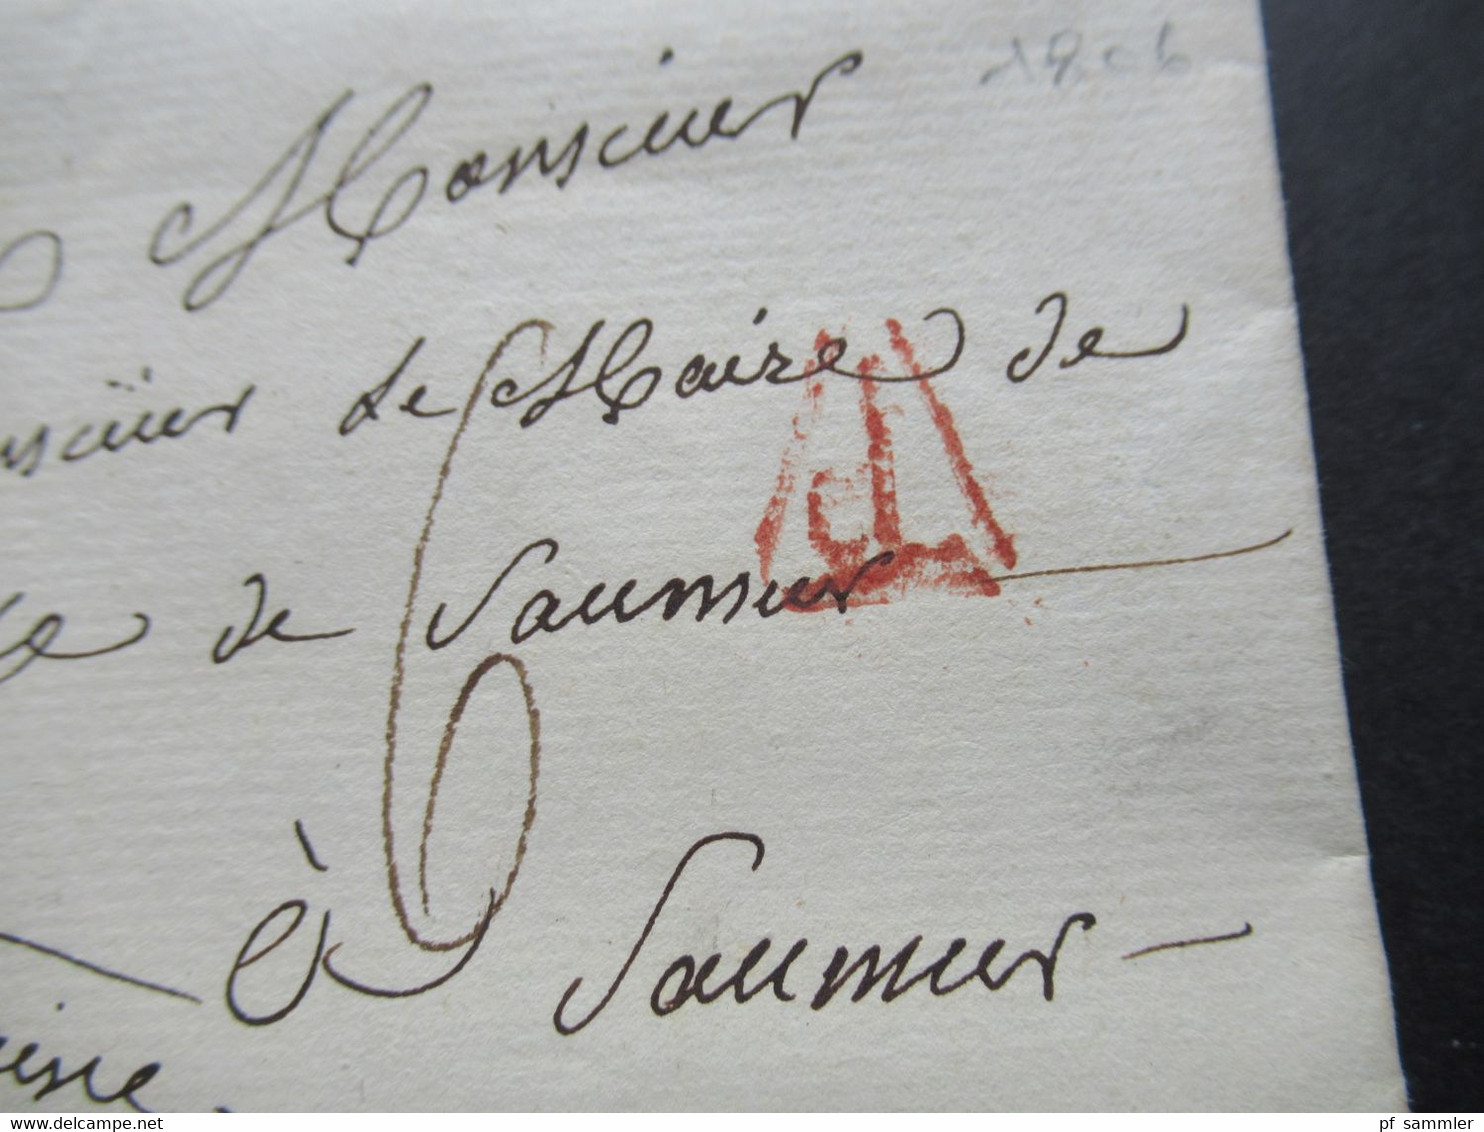 1806
Monsieur
le Maire de
de Saumur
6
à Saumur
www.delcampe.net
pf_sammler